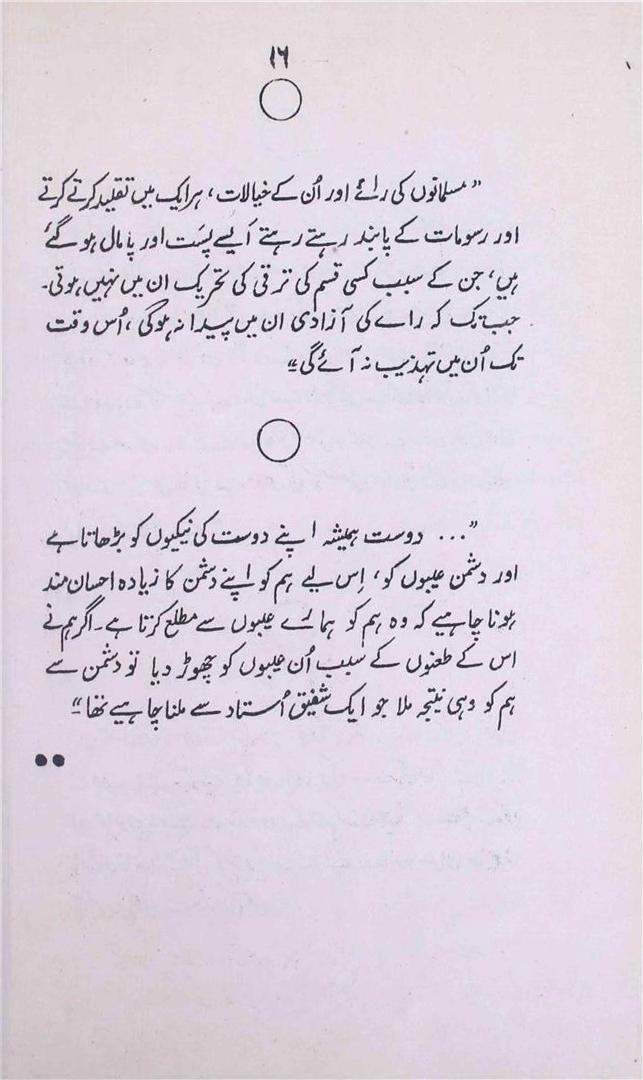 ۱۶
”مسلمانوں کی رائے اور اُن کے خیالات، ہر ایک میں تقلید کرتے کرتے
اور رسومات کے پابند رہتے رہتے ایسے پست اور پامال ہو گئے
ہیں، جن کے سبب کسی قسم کی ترقی کی تحریک ان میں نہیں ہوتی۔
جب تک کہ راے کی آزادی ان میں پیدا نہ ہوگی، اُس وقت
تک اُن میں تہذیب نہ آئے گی“
”... دوست ہمیشہ اپنے دوست کی نیکیوں کو بڑھاتا ہے
اور دشمن عیبوں کو، اِس لیے ہم کو اپنے دشمن کا زیادہ احسان مند
ہونا چاہیے کہ وہ ہم کو ہمارے عیبوں سے مطلع کرتا ہے۔ اگر ہم نے
اس کے طعنوں کے سبب اُن عیبوں کو چھوڑ دیا تو دشمن سے
ہم کو وہی نتیجہ ملا جو ایک شفیق اُستاد سے ملنا چاہیے تھا“